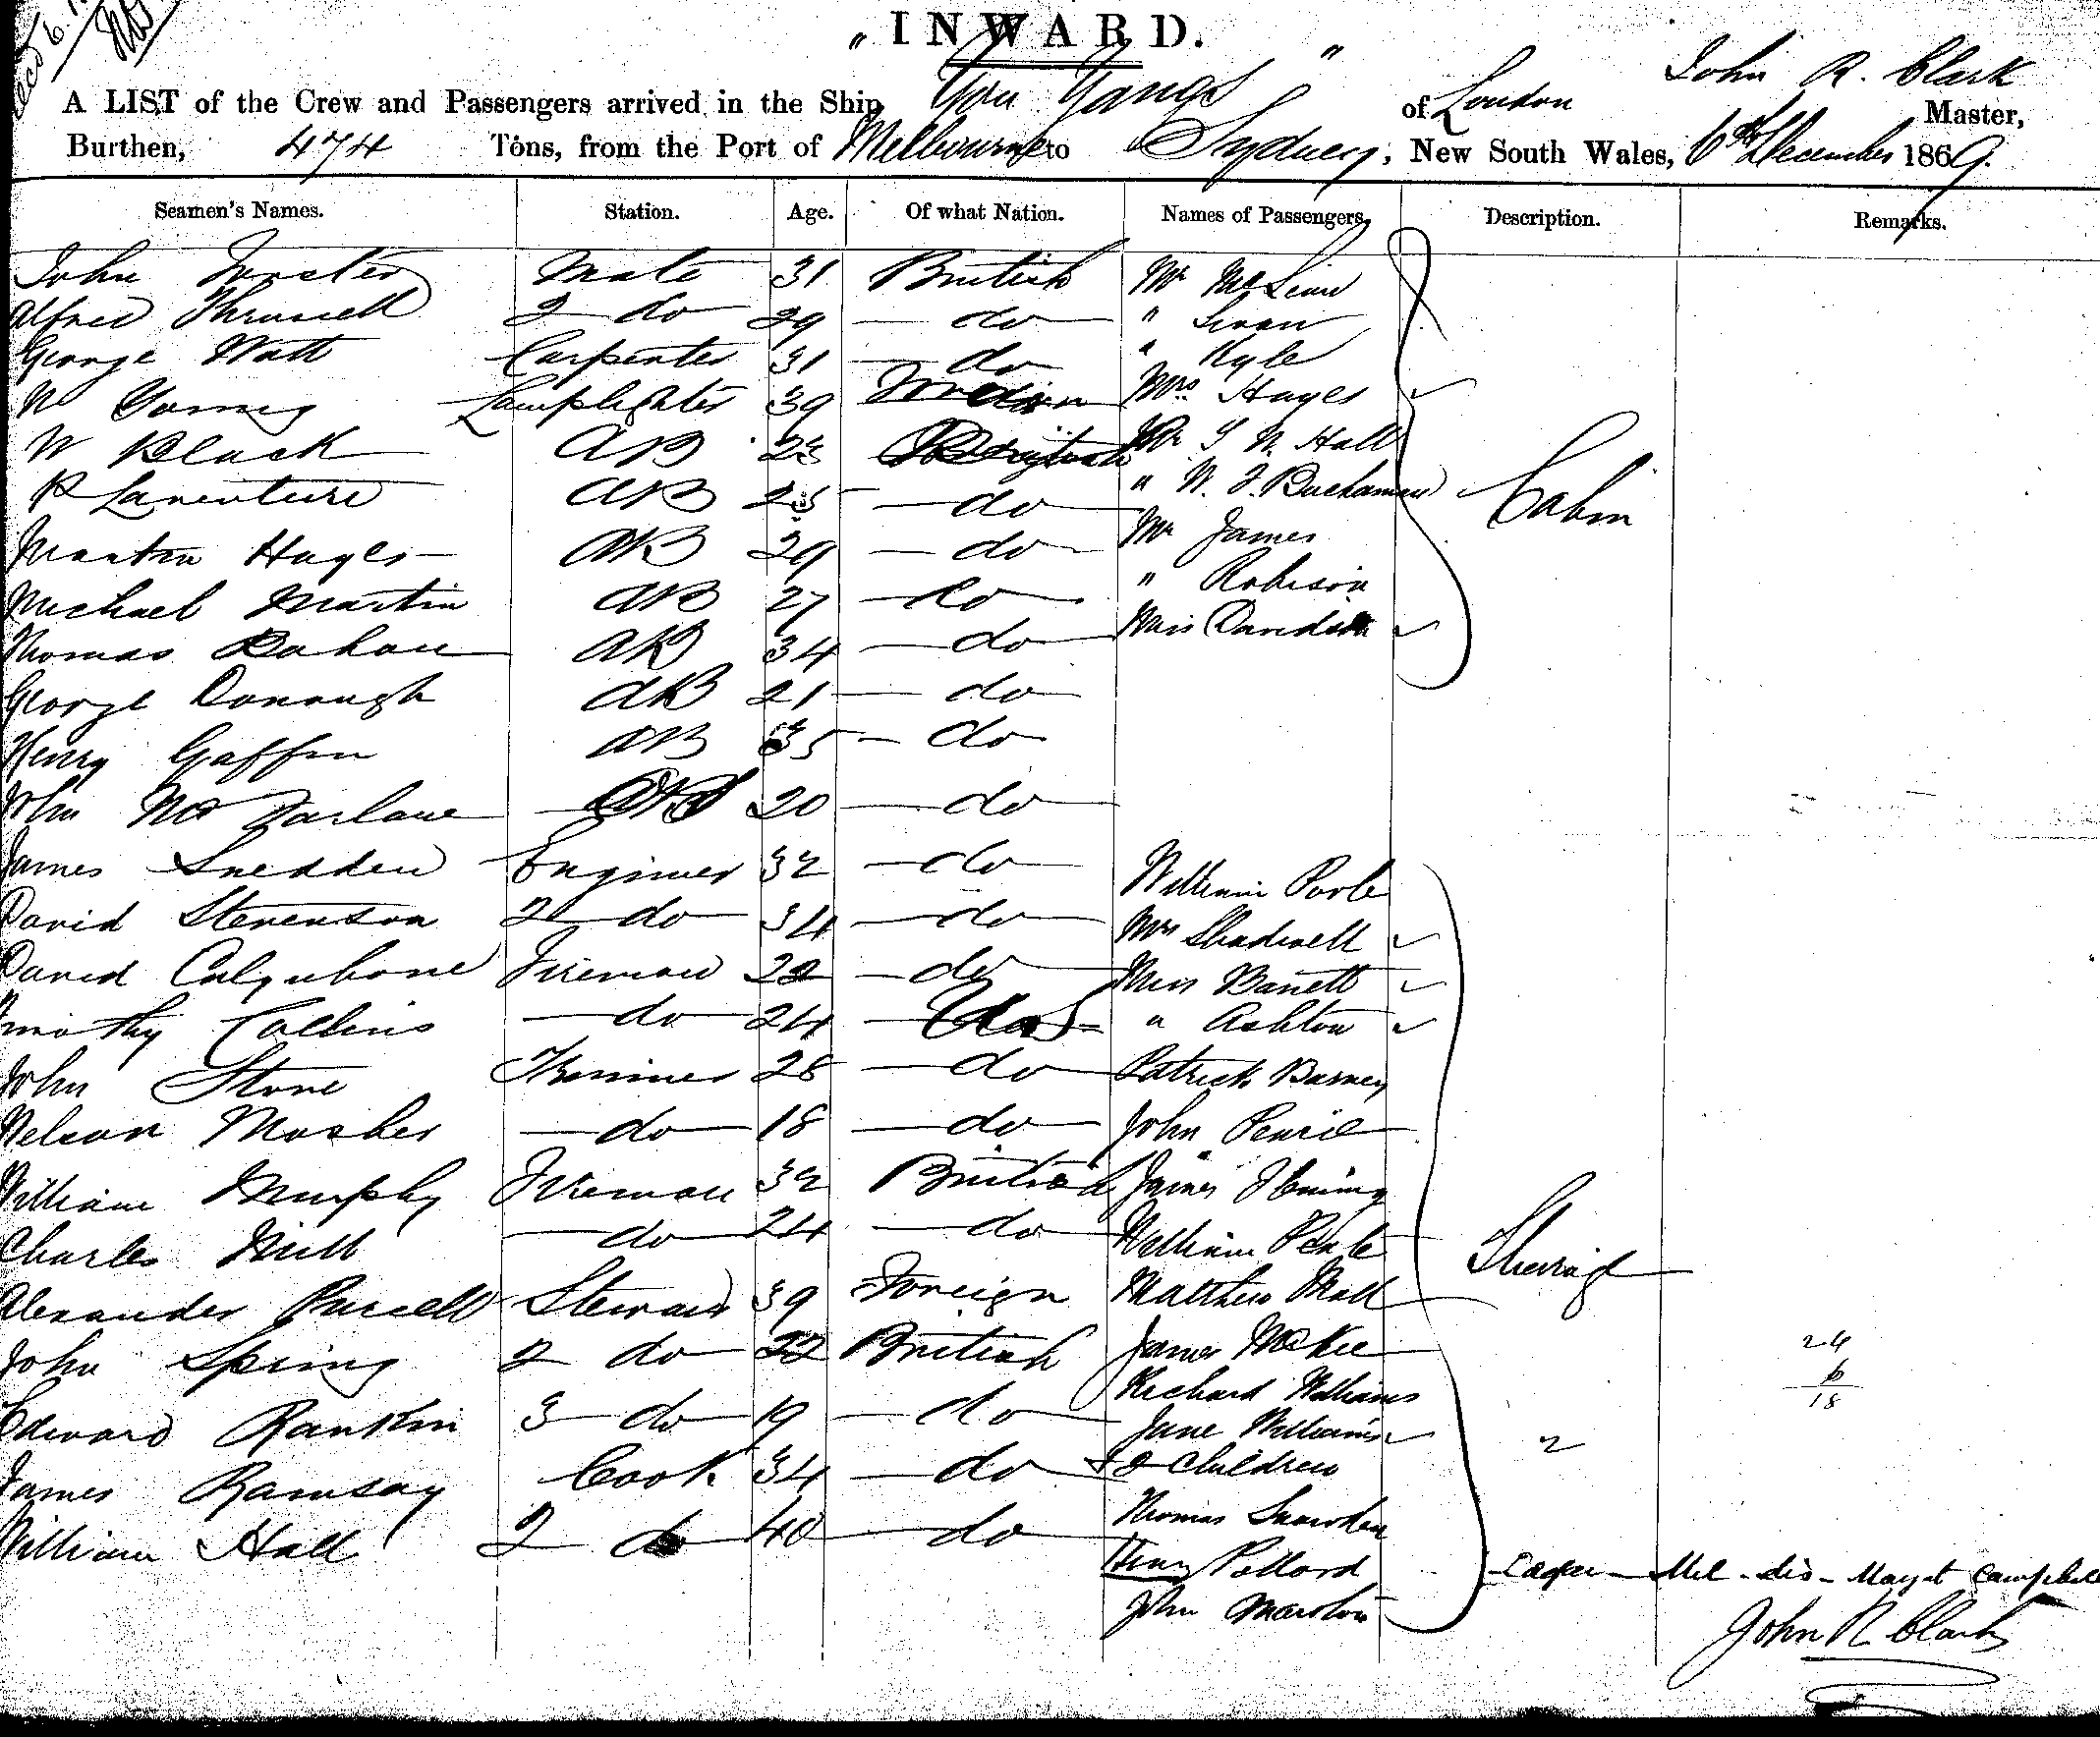 "INWARD.
John R. Clark
A LIST of the Crew and Passengers arrived in the Ship "You Yangs" of London Master,
Burthen, 474 Tons, from the Port of Melbourne to Sydney, New South Wales, 6th December 1869.
Seamen's Names. Station. Age. Of what Nation. Names of Passengers. Description. Remarks.
John Forster Mate 31 British Mr
Alfred Thrussell 2 do 29 do "
George Watt Carpenter 31 do " Kyle
W Young Lamplighter 39 Foreign Mrs Hayes
W Black AB 23 British Mr Hall
AB do " W. J. Buchanan Cabin
Martin Hayes AB 29 do Mr James
Michael Martin AB 27 do " Robison
Thomas AB 34 do Miss Davidson
George Donough AB 21 do
Henry Gaffin AB 35 do
John McFarlane 20 do
James Snedden Engineer 32 do William
David Stevenson 2 do 34 do Mrs Shadwell
David Colquhone Fireman do Miss Barrett
Timothy Collins do 24 do " Ashton
John Stone Trimmer 28 do Patrick Barney
Nelson Mosher do 18 do John
William Murphy Fireman 32 British James Fleming
Charles do 24 do William
Alexander Purcell Steward 39 Foreign Matthew Steerage
John Spring 2 do 22 British James McKee 24
Richard Williams 6
Edward Rankin 3 do 19 do Jane Williams " 18
James Ramsay Cook 34 do & 2 Children
Thomas Snowden
William Hall 2 do 40 do Henry Pollard
Mel - dis - Margt Campbell
John
John R Clark